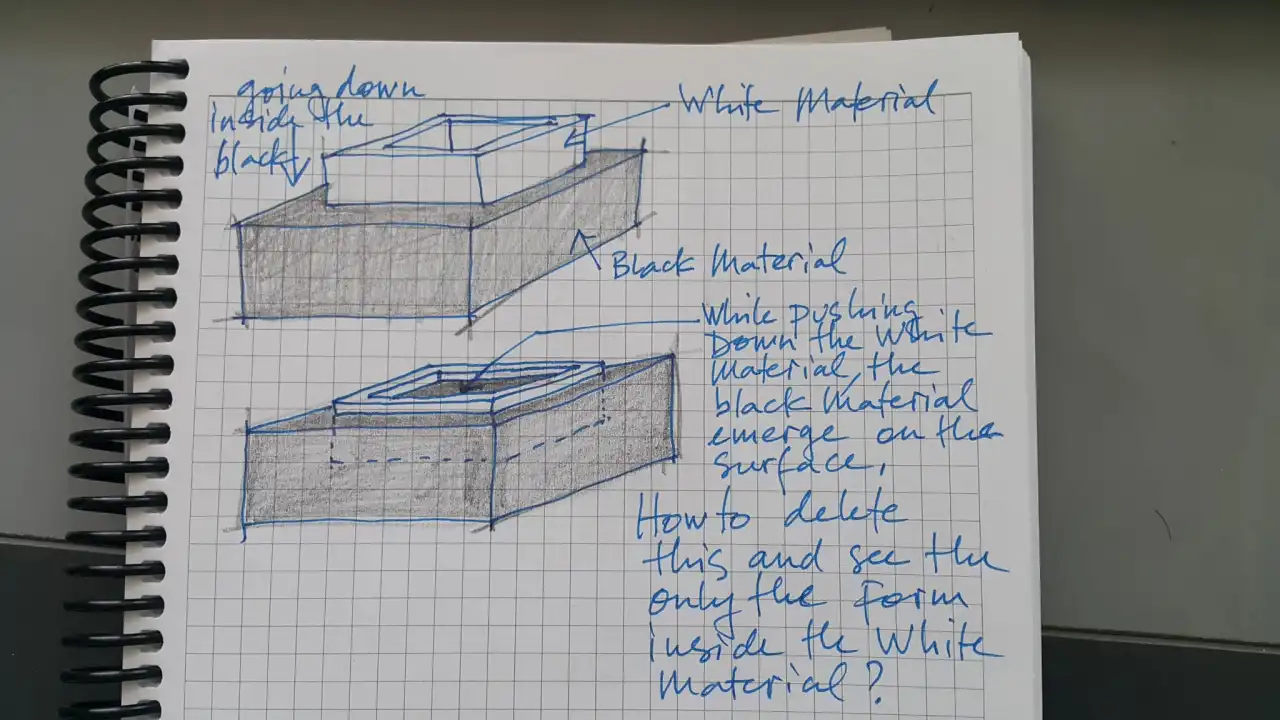 going down
inside the
black
White Material
Black Material
While pushing
Down the White
Material, the
black Material
emerge on the
surface,
How to delete
this and see the
only the Form
inside the White
Material?